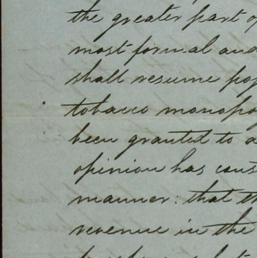 the greater part of
most formal and
shall resume
tobacco monopo
been granted to a
opinion has cons
manner: that th
revenue in the